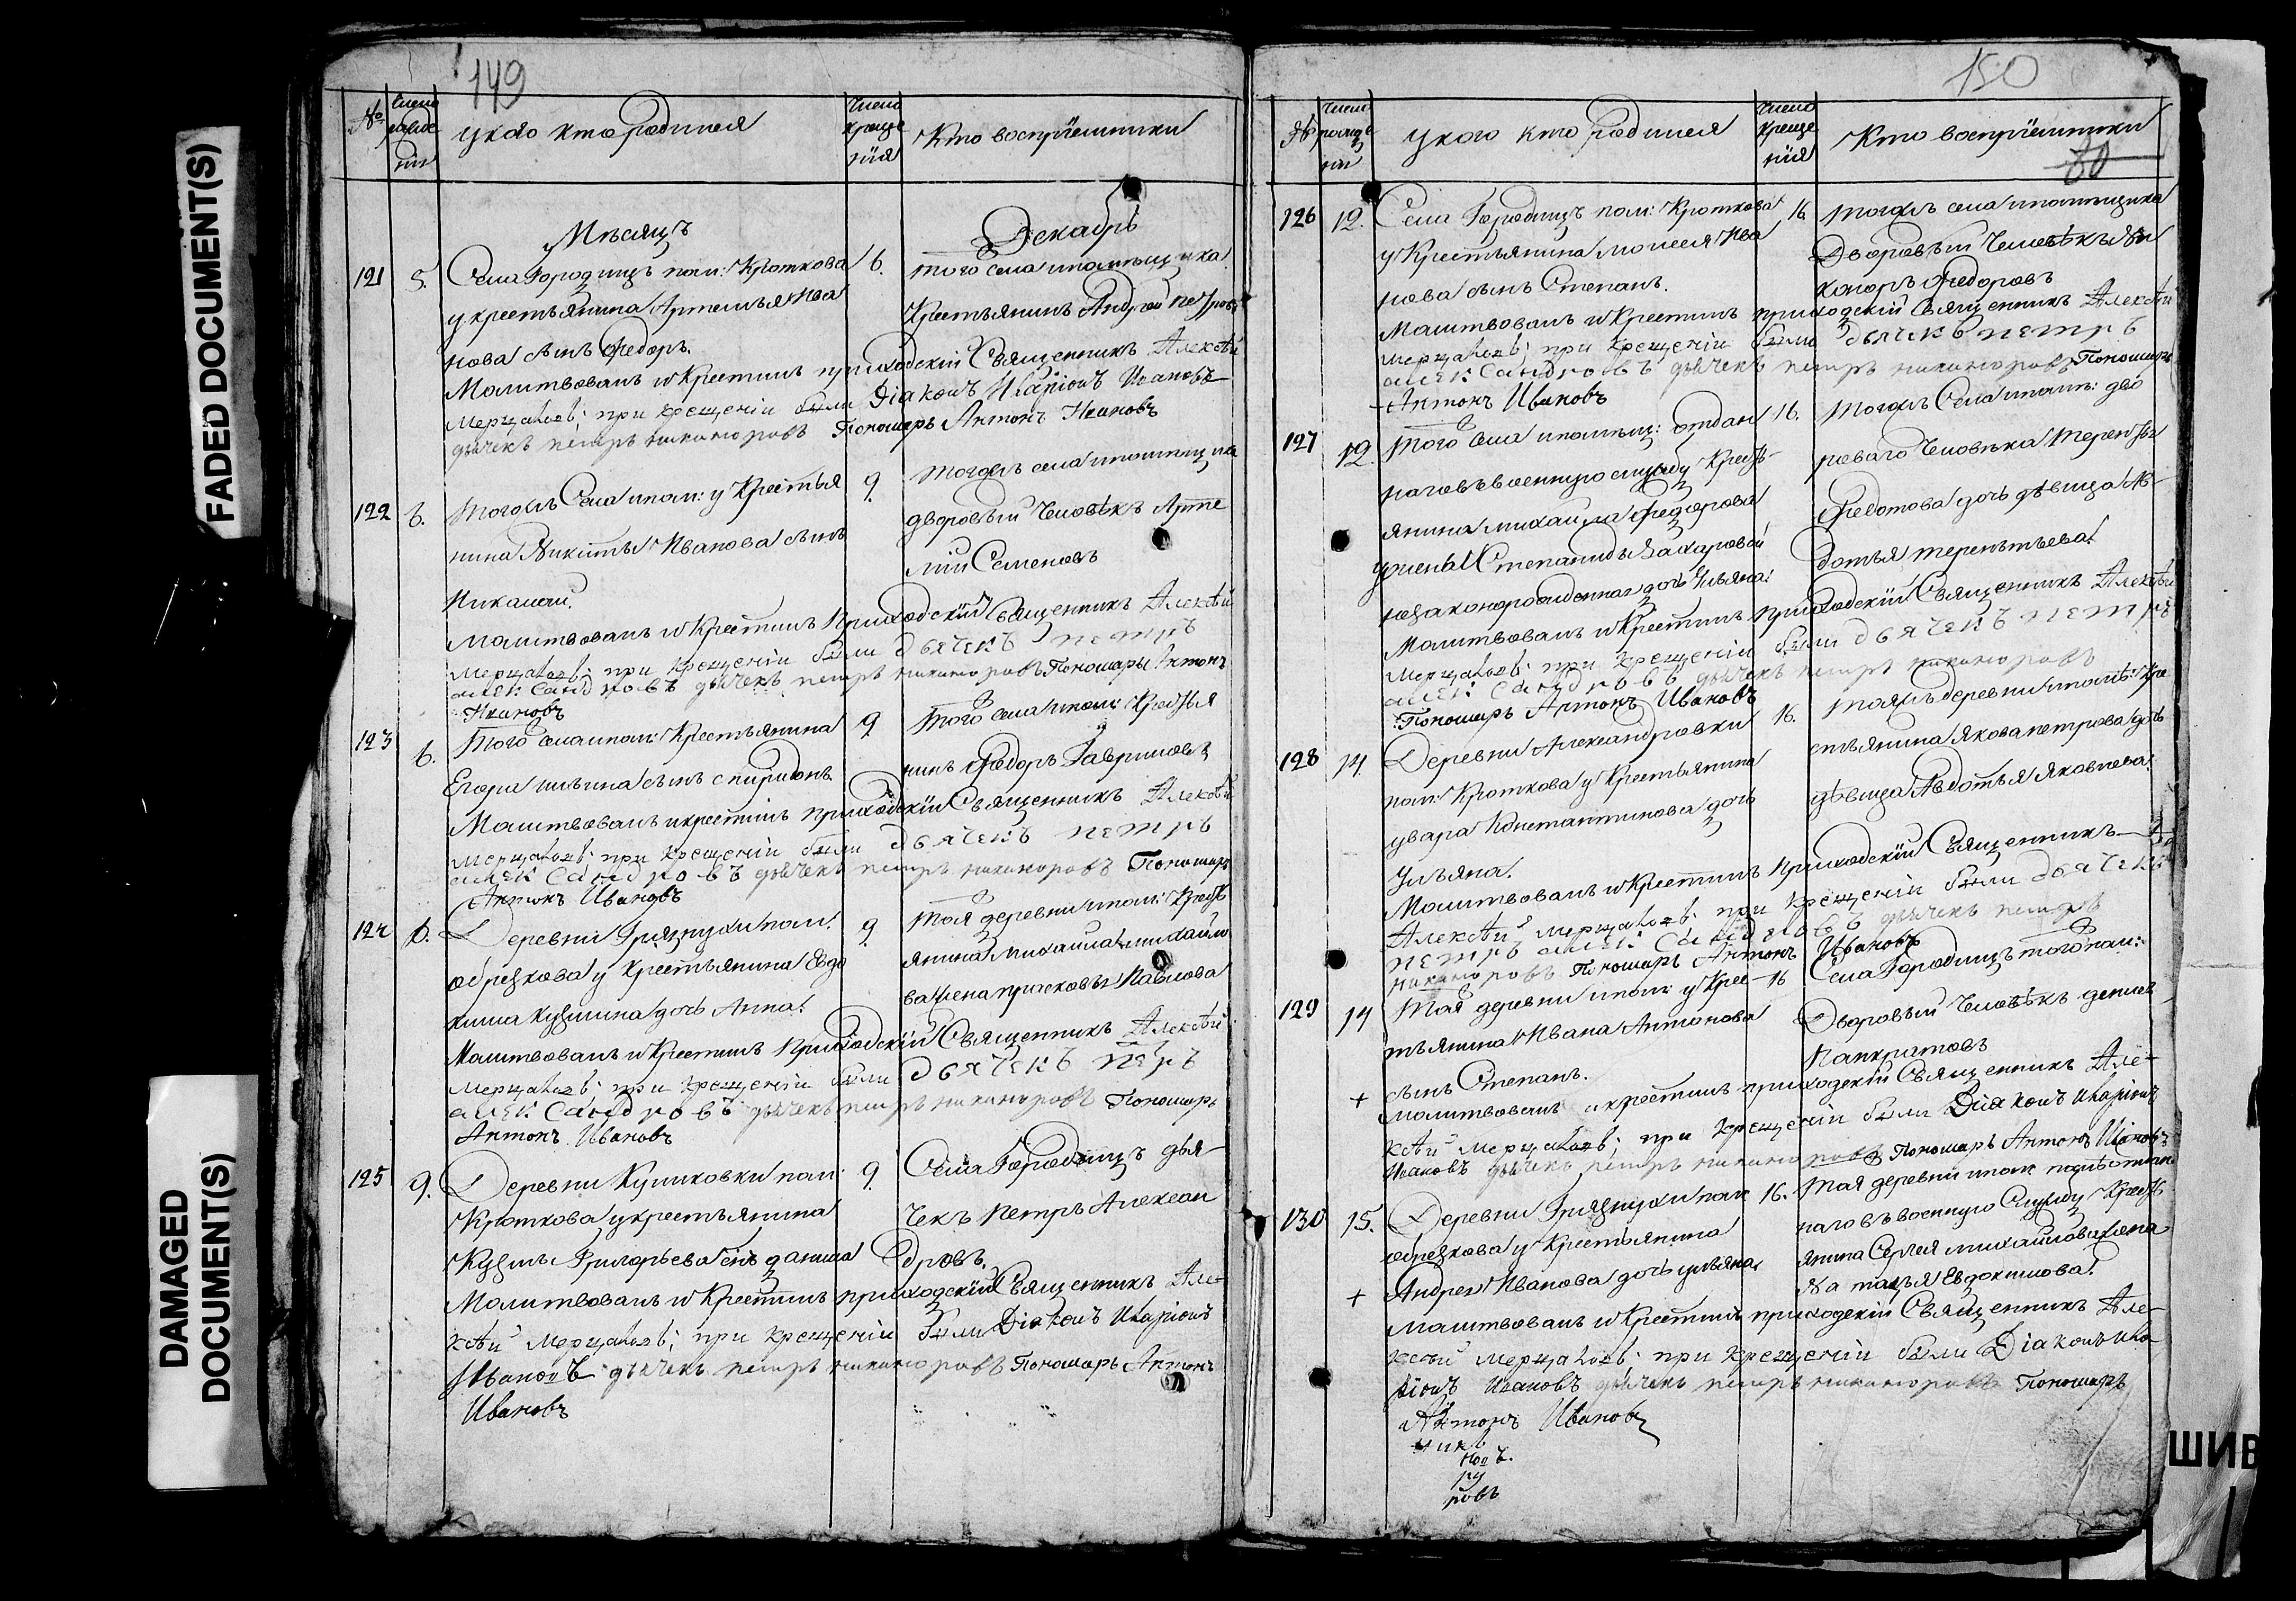 FADED DOCUMENT(S)
DAMAGED
DOCUMENT(S)
149
№
Число
рожде
нія
у кого кто родился
Число
креще
нія
Кто воспріемники
Мѣсяцъ Декабрь
121 5. Села Городищъ пом: Кроткова 6. того села и помѣщика
у крестьянина Артемья Ива крестьянинъ Андрей Петровъ
нова сынъ Федоръ.
Молитвовалъ и крестилъ приходскій Священникъ Алексѣй
Мерцаловъ; при крещеніи были Діаконъ Иларіонъ Ивановъ
дьячекъ петръ никаноровъ Пономарь Антонъ Ивановъ
122 6. Тогожъ Села и пом: у Крестья 9. Тогожъ села и помѣщика
нина Никиты Иванова сынъ дворовый Человѣкъ Арте
Николай. мій Семеновъ
молитвовалъ и Крестилъ Приходскій Священникъ Алексѣй
Мерцаловъ; при крещеніи были дьячекъ петръ
александровъ дьячекъ петръ никаноровъ Пономарь Антонъ
Ивановъ
123 6. Того села и пом: Крестьянина 9 Того села и пом: Крестья
Егора ильина сынъ спиридонъ нинъ Федоръ Гавриловъ
Молитвовалъ и крестилъ приходскій Священникъ Алексѣй
Мерцаловъ; при крещеніи были дьячекъ петръ
александровъ дьячекъ петръ никаноровъ Пономарь
Антонъ Ивановъ
124 6. Деревни Грязнухи пом: 9 Тоя деревни и пом: Кресть
обрезкова у крестьянина Евдо янина Михаила михайло
кима Кузмина дочь Анна. ва жена прасковья Павлова
Молитвовалъ и Крестилъ Приходскій Священникъ Алексѣй
Мерцаловъ; при крещеніи были дьячекъ петръ
александровъ дьячекъ петръ никаноровъ Пономарь
Антонъ Ивановъ
125 9. Деревни Куликовки пом: 9 Села Городищъ дья-
Кроткова у крестьянина чекъ Петръ Алексан
Кузмы Григорьева сынъ данила дровъ.
Молитвовалъ и Крестилъ приходскій Священникъ Але-
ксѣй Мерцаловъ; при крещеніи были Діаконъ Иларіонъ
Ивановъ дьячекъ петръ никаноровъ Пономарь Антонъ
Ивановъ
150
№
Число
рожде
нія
у кого кто родился
Число
креще
нія
Кто воспріемники
80
126 12. Села Городищъ пом: Кроткова 16. Тогожъ села и помѣщика
у Крестьянина моисея Ива Дворовый Человѣкъ Ни
нова сынъ Степанъ. каноръ Федоровъ
Молитвовалъ и Крестилъ приходскій Священникъ Алексѣй
Мерцаловъ; при крещеніи были дьячекъ петръ
александровъ дьячекъ петръ никаноровъ Пономарь
Антонъ Ивановъ
127 12. Того села и помѣщ: отдан 16. Тогожъ Села и пом: дво
наго въ военную службу Кресть- роваго Человѣка Терентья
янина михайла Федорова Федотова дочь дѣвица Ав-
у жены Степаниды Захаровой дотья терентьева.
незаконорожденная дочь Ульяна:
Молитвовалъ и Крестилъ приходскій Священникъ Алексѣй
Мерцаловъ; при крещеніи были дьячекъ петръ
александровъ дьячекъ петръ никаноровъ
Пономарь Антонъ Ивановъ
128 14. Деревни Александровки 16. Тояжъ деревни и пом: кре
пом: Кроткова у Крестьянина стьянина Якова петрова дочь
увара Константинова дочь дѣвица Авдотья Яковлева.
Ульяна.
Молитвовалъ и Крестилъ Приходскій Священникъ
Алексѣй Мерцаловъ; при крещеніи были дьячекъ
петръ александровъ дьячекъ петръ
никаноровъ Пономарь Антонъ Ивановъ
129 14 Тоя деревни и пом: у Крес- 16 Села Городищъ того пом:
тьянина Ивана Антонова Дворовый Человѣкъ денис
сынъ Степанъ. Панкратовъ
+ молитвовалъ и крестилъ приходскій Священникъ Але-
ксѣй Мерцаловъ; при крещеніи были Діаконъ Иларіонъ
Ивановъ дьячекъ петръ никаноровъ Пономарь Антонъ Ивановъ
130 15. Деревни Грязнухи пом 16. Тоя деревни и пом:
обрезкова у Крестьянина наго въ военную Службу Кресть
Андрея Иванова дочь ульяна. янина Сергея михайлова жена
+ Наталья Евдокимова.
Молитвовалъ и Крестилъ приходскій Священникъ Але-
ксѣй Мерцаловъ; при крещеніи были Діаконъ Ила-
ріонъ Ивановъ дьячекъ петръ никаноровъ Пономарь
Антонъ Ивановъ
ровъ
ШИВ